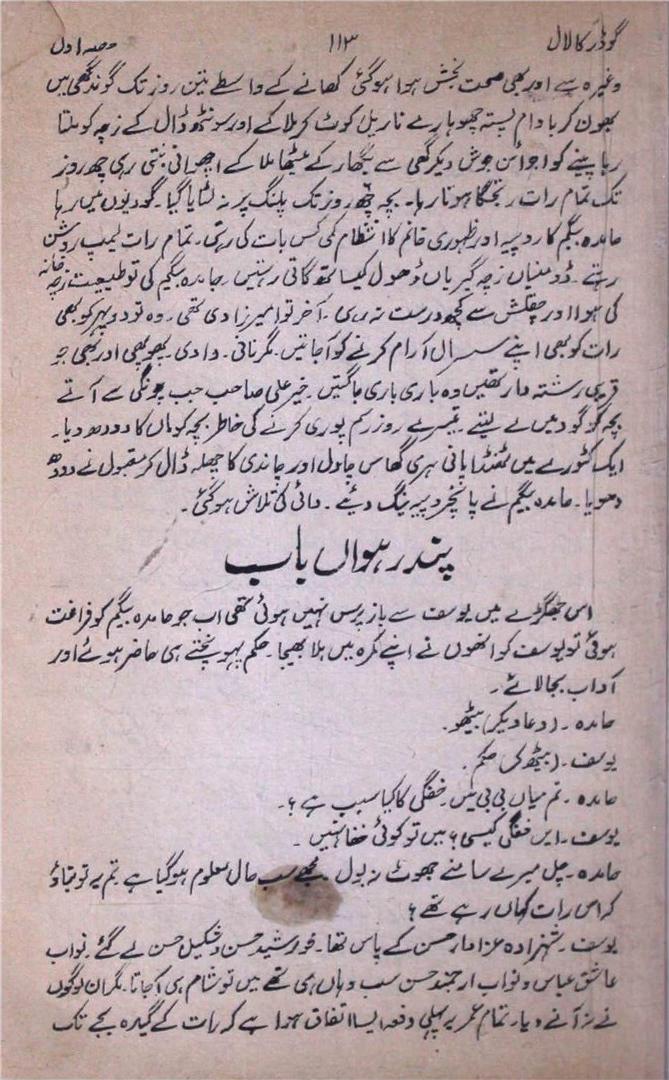 گوڈر کا لال ۱۱۳ حصہ اول
وغیرہ سے اور بھی صحت بخش ہوا ہوگئی کھانے کے واسطے تین روز تک گوند گھی میں
بھون کر بادام پستہ چھوہارے ناریل کوٹ کر ملا کے اور سونٹھ ڈال کے زچہ کو ملتا
رہا پینے کو اجوائن جوش دیکر گھی سے بگھار کے میٹھا ملا کے اچھوانی بنتی رہی چھ روز
تک تمام رات رتجگا ہوتا رہا۔ بچہ چھ روز تک پلنگ پر نہ لٹایا گیا۔ گودیوں میں رہا
حامدہ بیگم کا روپیہ اور ظہوری خانم کا انتظام کمی کس بات کی رہتی۔ تمام رات لیمپ روشن
رہتے۔ ڈومنیاں زچہ گیریاں ڈھول کیساتھ گاتی رہتیں۔ حامدہ بیگم کی تو طبیعت زچہ خانہ
کی ہوا اور چقلش سے کچھ درست نہ رہی۔ آخر تو امیر زادی تھی۔ وہ تو دوپہر کو بھی
رات کو بھی اپنے سسرال آرام کرنے کو آجاتیں۔ مگر نانی۔ دادی۔ پھوپھی اور بھی جو
قریبی رشتہ دار تھیں وہ باری باری جاگتیں۔ خیر علی صاحب جب چونگی سے آتے
بچہ کو گود میں لے لیتے۔ تیسرے روز رسم پوری کرنے کی خاطر بچہ کو ماں کا دودھ دیا۔
ایک کٹورے میں ٹھنڈا پانی ہری گھاس چاول اور چاندی کا چھلہ ڈال کر مقبول نے دودھ
دھویا۔ حامدہ بیگم نے پانچ روپیہ نیگ دیئے۔ دائی کی تلاش ہوگئی۔
پندرہواں باب
اس جھگڑے میں یوسف سے باز پرس نہیں ہوئی تھی اب جو حامدہ بیگم کو فراغت
ہوئی تو یوسف کو انھوں نے اپنے کمرہ میں بلا بھیجا۔ حکم پہونچتے ہی حاضر ہوئے اور
آداب بجا لائے۔
حامدہ۔ (دعا دیکر) بیٹھو۔
یوسف۔ (بیٹھ کر) حکم۔
حامدہ۔ تم میاں بی بی میں۔ خفگی کا کیا سبب ہے؟۔
یوسف۔ ایں خفگی کیسی؟ میں تو کوئی خفا نہیں۔
حامدہ۔ چل میرے سامنے جھوٹ نہ بول۔ مجھے سب حال معلوم ہوگیا ہے تم یہ تو بتاؤ
کہ اس رات کہاں رہے تھے؟
یوسف۔ شہزادہ عزادار حسن کے پاس تھا۔ خورشید حسن و شکیل حسن لے گئے۔ نواب
عاشق عباس و نواب ارجمند حسن سب وہاں ہی تھے میں تو شام ہی آجاتا۔ مگر ان لوگوں
نے نہ آنے دیا۔ تمام عمر یہ پہلی دفعہ ایسا اتفاق ہوا ہے کہ رات کے گیارہ بجے تک